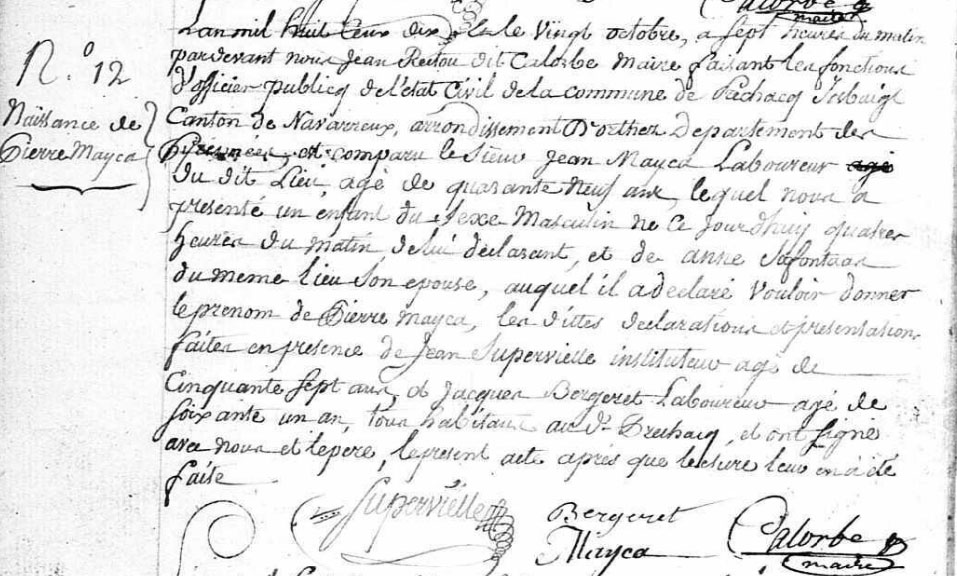 Calorbe
maire
N.º 12
Naissance de
Pierre Mayca
Lan mil huit Ceux dix et le Vingt octobre, a sept heures du matin
pardevant nous Jean Reitou dit Calorbe maire faisant les fonctions
d'officier publicq de l'état Civil de la commune de Préchacq
Canton de Navarreux, arrondissement D'orthez Departement des
Pirennées, est comparu le Sieur Jean Mayca Laboureur agé
Du dit Lieu, agé de quarante neuf ans, lequel nous a
presenté un enfant du Sexe Masculin ne Ce Jourdhuy quatres
heures du matin delui déclarant, et de anne Lafontaas
du meme lieu Son epouse, auquel il a declaré Vouloir donner
le prenom de Pierre Mayca, les dittes declarations et presentation
faites en presence de Jean Supervielle instituteur agé de
Cinquante Sept ans, et Jacques Bergeret Laboureur agé de
Soixante un an, tous habitans au dt Prechacq, et ont signé
avec nous et le pere, le present acte après que lecture leur en a été
faite
Supervielle
Bergeret
Mayca
Calorbe
maire